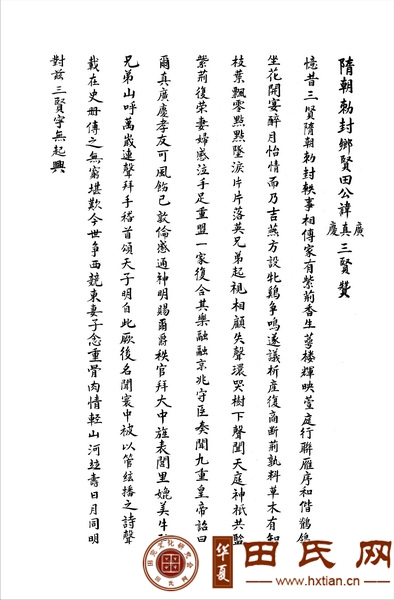 隋朝勅封鄉賢田公諱廣真慶三賢贊
憶昔三賢隋朝勅封軼事相傳家有紫荊香生萼樓輝映萱庭行聯雁序和偕鶺鴒
坐花開宴醉月怡情而乃吉燕方設牝鷄爭鳴遂議析產復商斷荊孰料草木有知
枝葉飄零點點墜淚片片落英兄弟起視相顧失聲環哭樹下聲聞天庭神祇共鑒
紫荊復榮妻婦感泣手足重盟一家復合其樂融融京兆守臣奏聞九重皇帝詔曰
爾真廣慶孝友可風飭己敦倫感通神明賜爾爵秩官拜大中旌表閭里媲美牛
兄弟山呼萬歲連聲拜手稽首頌天子明自此厥後名聞寰中被以管絃播之詩聲
載在史冊傳之無窮堪歎今世爭西競東妻子念重骨肉情輕山河並壽日月同明
對茲三賢寧無起興
華夏
田氏网
www.hxtian.cn